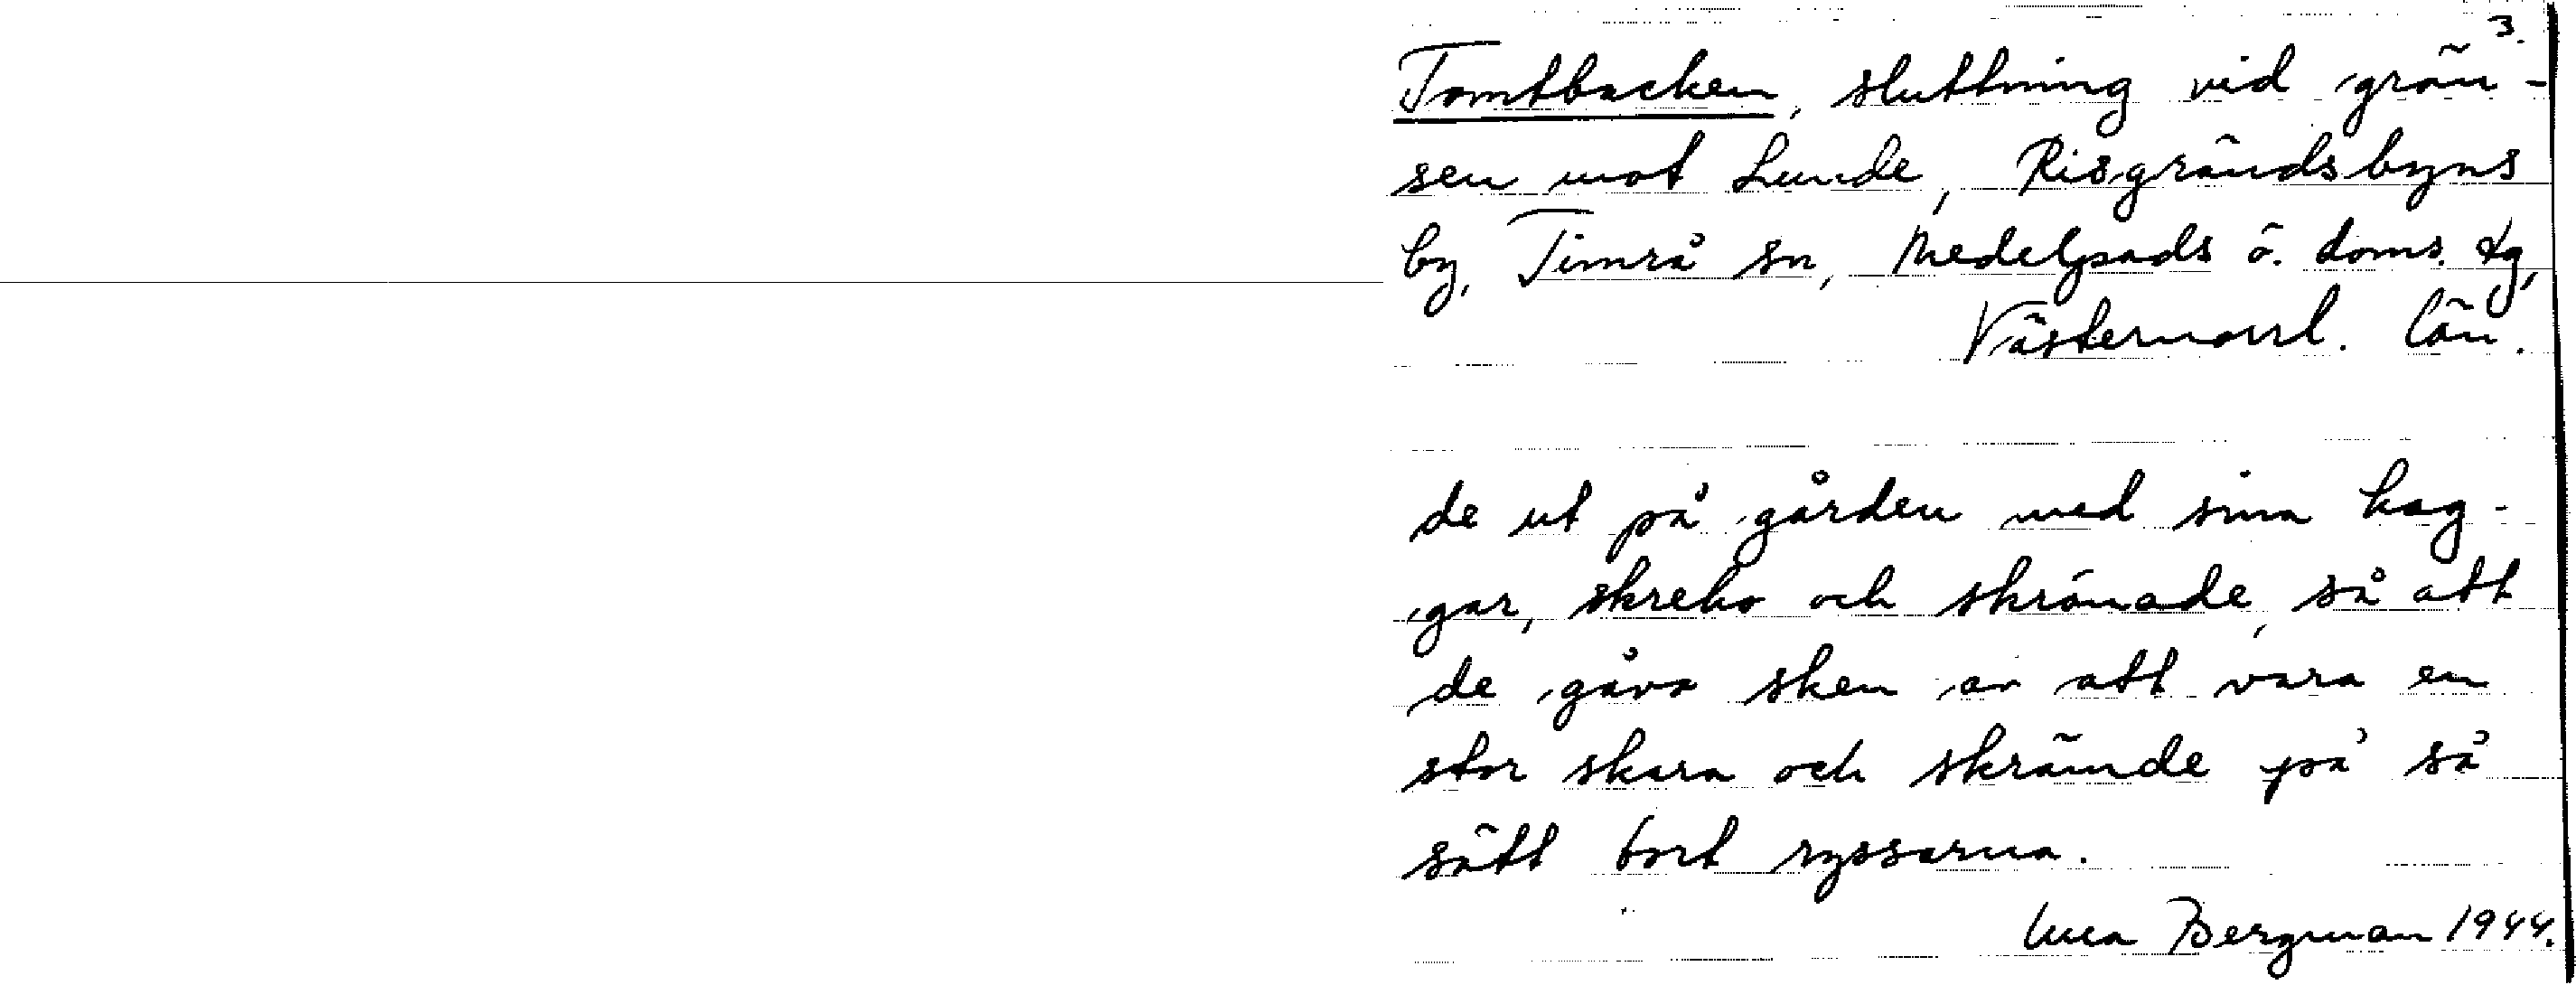 3.
Tomtbacken, sluttning vid grän-
sen mot Lunde, Risgrändsbyns
by, Timrå sn, Medelpads ö. doms. tg,
Västernorrl. län.
de ut på gården med sina hag-
gar, skreko och skrånade, så att
de gåvo sken av att vara en
stor skara och skrämde på så
sätt bort ryssarna.
Bergman 1944.